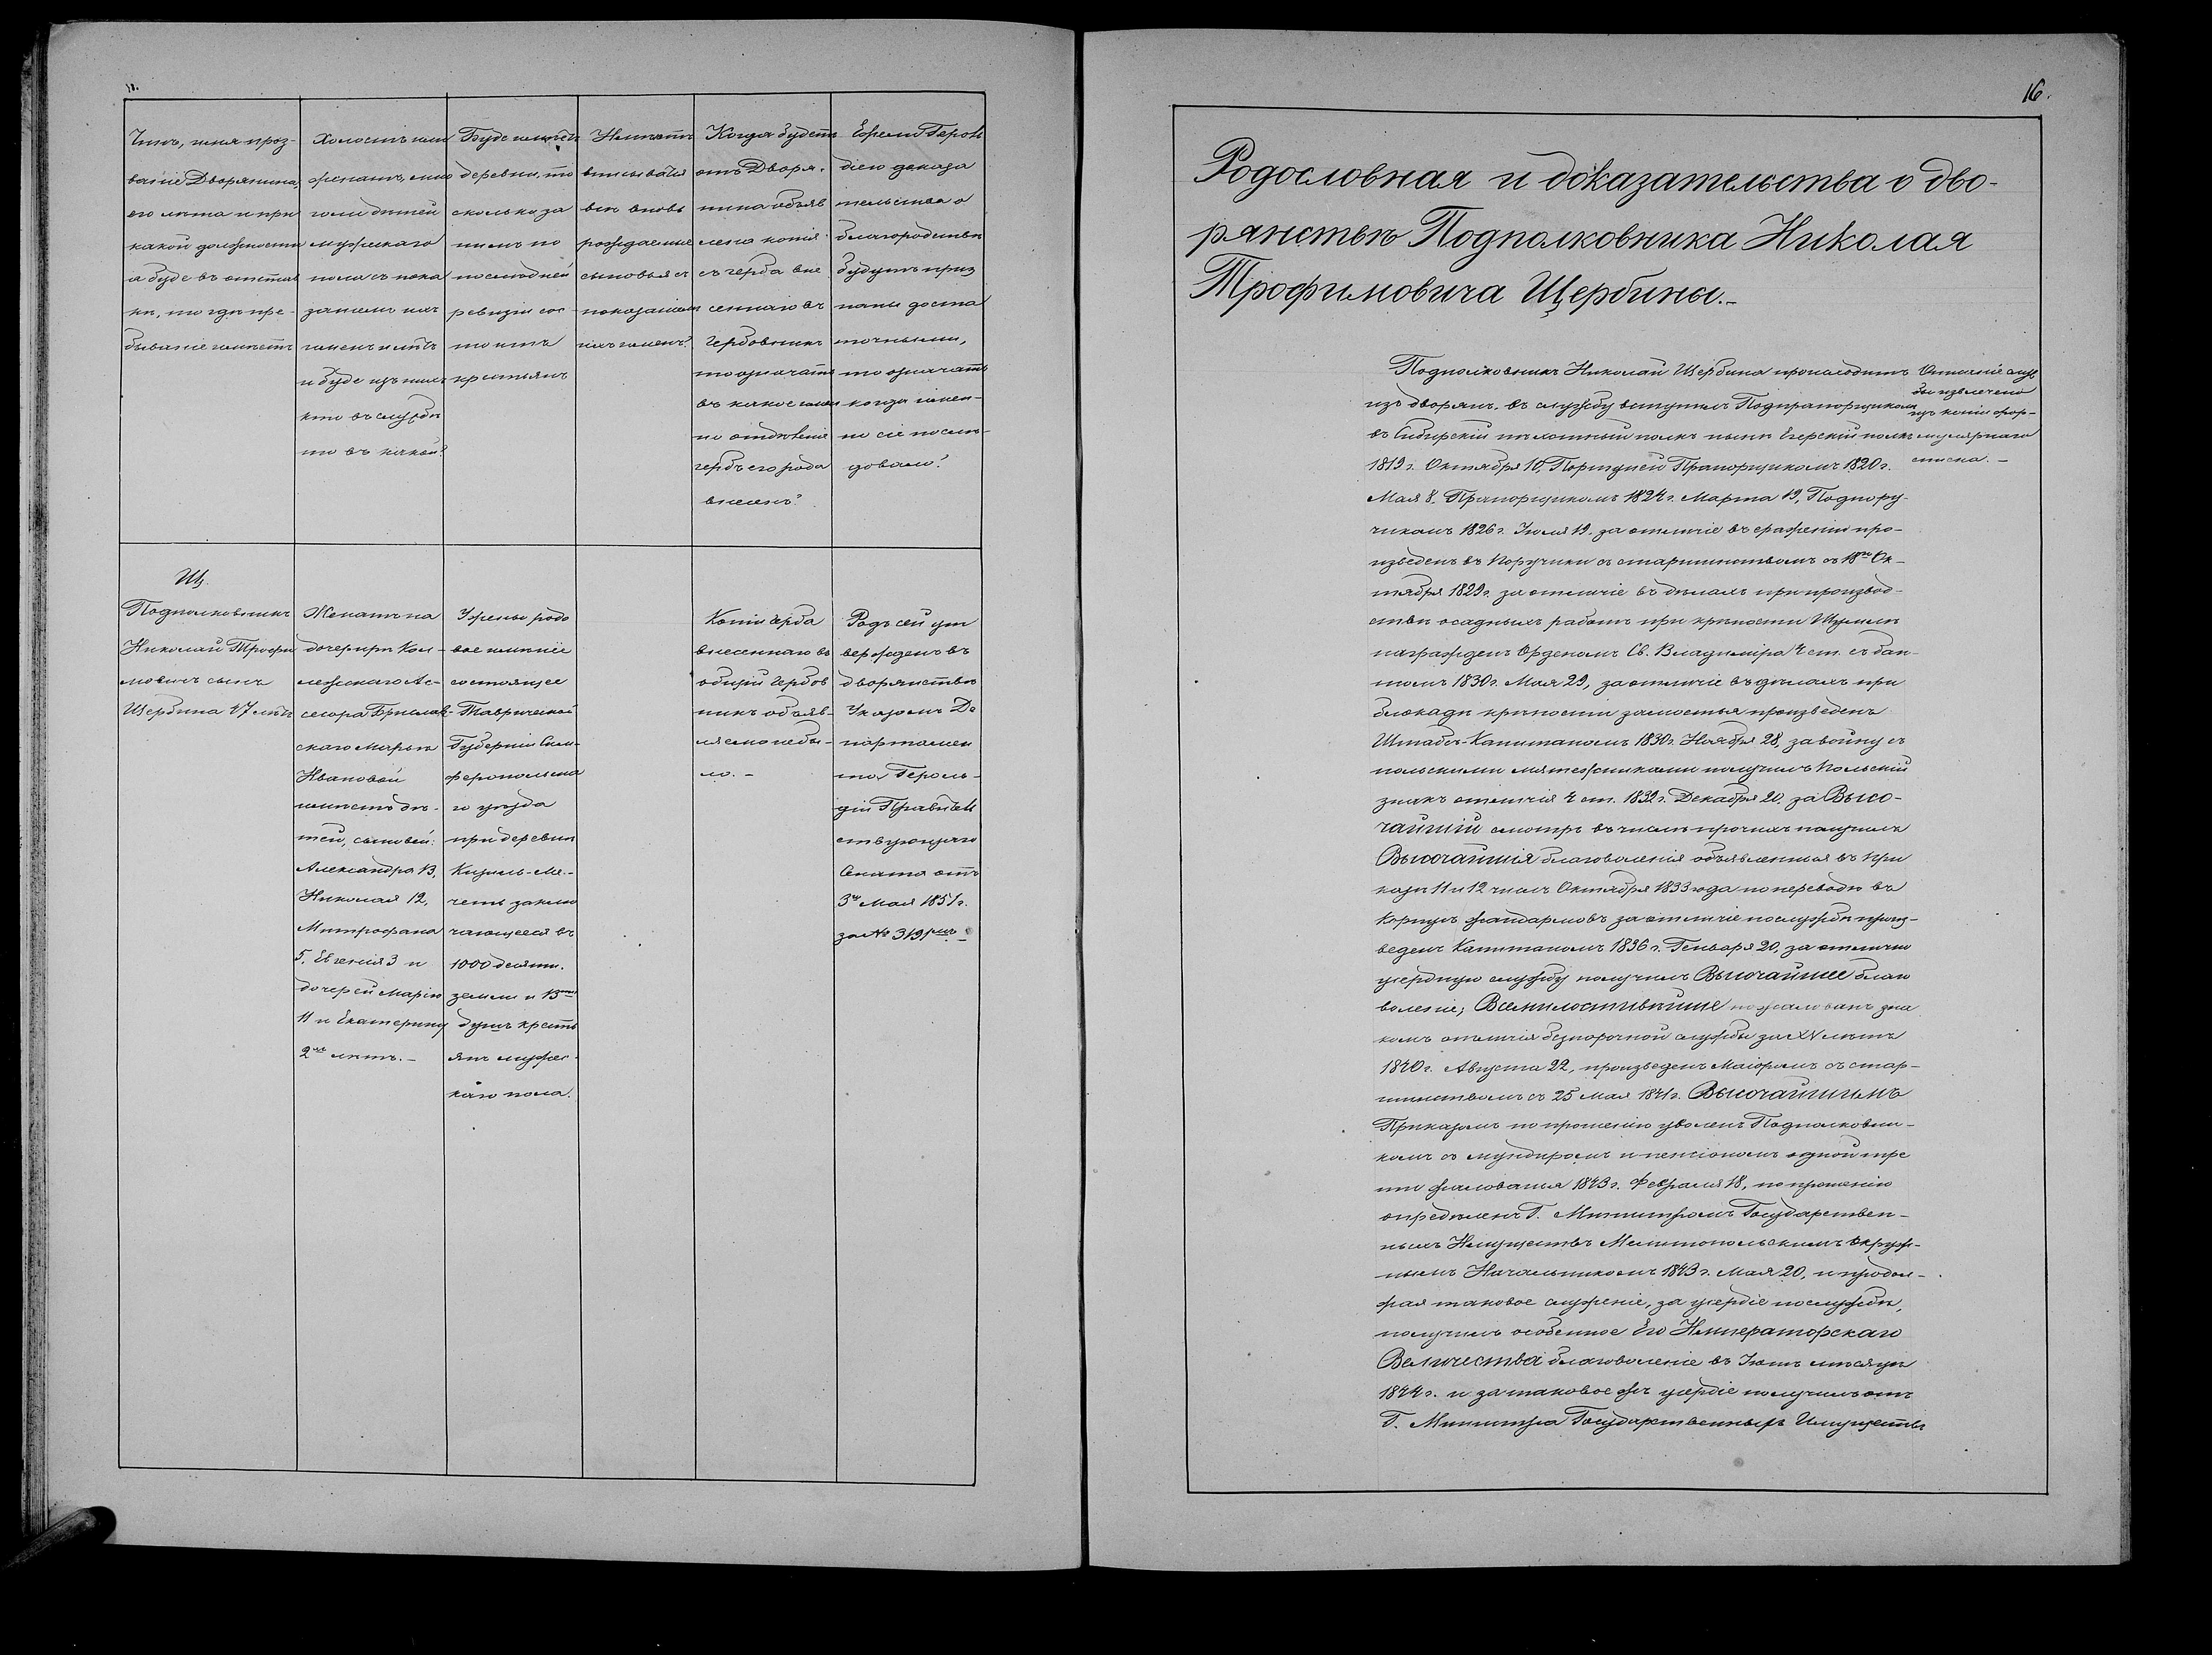 Чинъ, имя проз-
ваніе Дворянина,
его лѣта и при
какой должности
а буде въ отстав
кѣ, то гдѣ пре-
бываніе имѣетъ
Холостъ или
женатъ, мно
го ли дѣтей
мужескаго
пола съ пока
заніемъ ихъ
именъ и лѣтъ
и буде изъ нихъ
кто въ службѣ
то въ какой?
Буде имѣетъ
деревни, то
сколько за
нимъ по
послѣдней
ревизіи сос
тоитъ
крестьянъ
вписыватся
всѣ вновь
рождаемые
сыновья съ
показаніемъ
ихъ именъ?
Когда будетъ
отъ Дворя-
нина объяв
лена копія
съ герба вне
сеннаго въ
Гербовникъ
то означать
въ какое имен
но отдѣленіе
гербъ его рода
внесенъ?
Ежели Героль
діею доказа
тельства о
благородствѣ
будутъ приз
наны доста
точными,
то означать
когда имен-
но сіе послѣ-
довало?
Щ.
Подполковникъ
Николай Трофи
мовичъ сынъ
Щербина 47 лѣтъ
Женатъ на
дочери Кол-
лежскаго Ас-
сесора
скаго Марьѣ
Ивановой
имѣетъ дѣ-
тей, сыновей:
Александра 13,
Николая 12,
Митрофана
5, Евгенія 3 и
дочерей Марію
11 и Екатерину
2хъ лѣтъ.-
У жены родо
вое имѣніе
состоящее
Таврической
Губерніи Сим-
феропольска
го уѣзда
при деревнѣ
Кизиль-Ме-
четь заклю
чающееся въ
1000 десятин.
земли и 13ти
душъ кресть
янъ мужес-
каго пола.
Копіи герба
внесеннаго въ
общій Гербов
никъ объяв-
ляемо небы-
ло.-
Родъ сей ут
вержденъ въ
дворянствѣ
Указомъ Де
партамен
та Героль-
діи Правитель
ствующаго
Сената отъ
3го Мая 1851 г.
за № 319
16.
Родословная и доказательства о дво-
рянствѣ Подполковника Николая
Трофимовича Щербины.-
Подполковникъ Николай Щербина происходитъ
изъ дворянъ. въ службу вступилъ Подпрапорщикомъ
въ Сибирскій пѣхотный полкъ нынѣ Егерскій полкъ
1819 г. Октября 10, Портупей Прапорщикомъ 1820 г.
Мая 8. Прапорщикомъ 1824 г. Марта 19, Подпору-
чикомъ 1826 г. Іюля 19. за отличіе въ сраженіи про-
изведенъ въ Поручики со старшинствомъ съ 18го Ок-
тября 1829 г. за отличіе въ дѣлахъ при производ-
ствѣ осадныхъ работъ при крѣпости Шумлѣ
награжденъ Орденомъ Св. Владиміра 4 ст. съ бан-
томъ 1830 г. Мая 29, за отличіе въ дѣлахъ при
блокадѣ крѣпости Замостья произведенъ
Штабсъ-Капитаномъ 1830 г. Ноября 28, за войну съ
польскими мятежниками получилъ Польскій
знакъ отличія 4 ст. 1832 г. Декабря 20, за Высо-
чайшій смотръ въ числѣ прочихъ получилъ
Высочайшія благоволенія объявленныя въ при
казѣ 11 и 12 чиселъ Октября 1833 года по переводѣ въ
Корпусъ жандармовъ за отличіе по службѣ произ-
веденъ Капитаномъ 1836 г. Генваря 20, за отлично
усердную службу получилъ Высочайшее благо
воленіе; Всемилостивѣйше пожалованъ зна
комъ отличія безпорочной службы за XV лѣтъ
1840 г. Августа 22, произведенъ Маіоромъ со стар-
шинствомъ съ 25 Мая 1841 г. Высочайшимъ
Приказомъ по прошенію уволенъ Подполковни-
комъ съ мундиромъ и пенсіономъ одной тре
ти жалованья 1843 г. Февраля 18, по прошенію
опредѣленъ Г. Министромъ Государствен-
ныхъ Имуществъ Мелитопольскимъ Окруж-
нымъ Начальникомъ 1843 г. Мая 20, и продол-
жая таковое служеніе, за усердіе по службѣ,
получилъ особенное Его Императорскаго
Величества благоволеніе въ Іюнѣ мѣсяцѣ
1844 г. и за таковое жъ усердіе получилъ отъ
Г. Министра Государственныхъ Имуществъ
Описаніе служ
бы извлечено
изъ копіи фор-
мулярнаго
списка.-